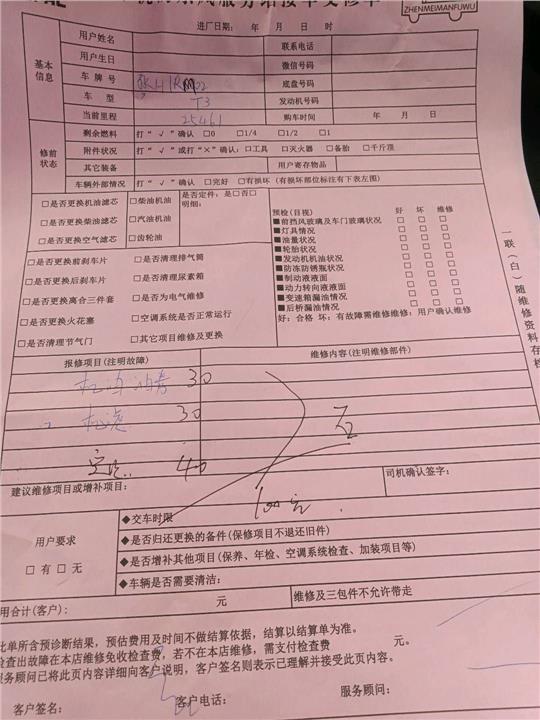 ZHENMEIMANFUWU
进厂日期: 年 月 日 时
基本信息
用户姓名 联系电话
用户生日 微信号码
车牌号 底盘号码
车型 T3 发动机号码
当前里程 25461 购车时间 年 月 日
修前状态
剩余燃料 打“√”确认 □0 □1/4 □1/2 □1
附件状况 打“√”或打“×”确认:□工具 □灭火器 □备胎 □千斤顶
其它装备 用户寄存物品
车辆外部情况 打“√”确认 □完好 □有损坏(有损坏部位标注有下表左图)
□是否更换机油滤芯 □柴油机油 是否定件:是□否□
□是否更换柴油滤芯 □汽油机油 明细:
□是否更换空气滤芯 □齿轮油
□是否更换前刹车片 □是否清理排气筒
□是否更换后刹车片 □是否清理尿素箱
□是否更换离合三件套 □是否为电气维修
□是否更换火花塞 □空调系统是否正常运行
□是否清理节气门 □其它项目维修及更换
预检(目视) 好 坏 维修
■前挡风玻璃及车门玻璃状况 □ □ □
■灯具情况 □ □ □
■油量状况 □ □ □
■轮胎状况 □ □ □
■发动机机油状况 □ □ □
■防冻防锈瓶状况 □ □ □
■制动液液面 □ □ □
■动力转向液液面 □ □ □
■变速箱漏油情况 □ □ □
■后桥漏油情况 □ □ □
好:合格 坏:有故障需维修维修:用户确认维修
一联(白)随维修资料存档
报修项目(注明故障) 维修内容(注明维修部件)
30
30
40
100元
建议维修项目或增补项目: 司机确认签字:
用户要求
□有□无
◆交车时限
◆是否归还更换的备件(保修项目不退还旧件)
◆是否增补其他项目(保养、年检、空调系统检查、加装项目等)
◆车辆是否需要清洁:
用合计(客户): 元 维修及三包件不允许带走
此单所含预诊断结果,预估费用及时间不做结算依据,结算以结算单为准。
检查出故障在本店维修免收检查费,若不在本店维修,需支付检查费 元。
服务顾问已将此页内容详细向客户说明,客户签名则表示已理解并接受此页内容。
客户签名: 客户电话: 服务顾问: